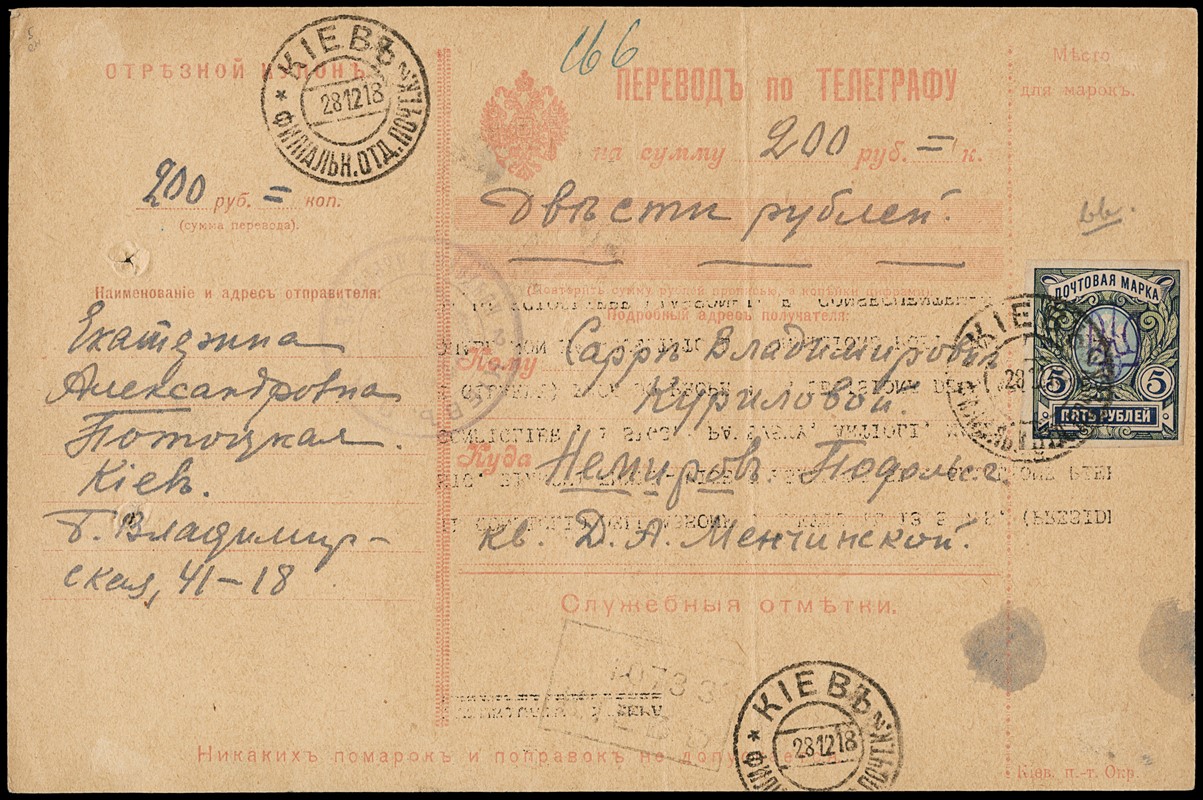 ОТРѢЗНОЙ КУПОНЪ
КІЕВЪ
28 12 18
ФИЛІАЛЬН. ОТД. ПОЧТ. К.
200 руб. = коп.
(сумма перевода).
Наименованіе и адресъ отправителя:
Екатерина
Александровна
Потоцкая.
Кіевъ.
Б. Владимир-
ская, 41-18
166
ПЕРЕВОДЪ по ТЕЛЕГРАФУ
на сумму 200 руб. = к.
Двѣсти рублей.
(Повторить сумму рублей прописью, а копѣйки цифрами).
Подробный адресъ получателя:
Кому Сарри Владимировнѣ
Куриловой.
Куда Немировъ Подольс. г.
кв. Д. А. Менчинской.
Служебныя отмѣтки.
КІЕВЪ
28 12 18
Никакихъ помарокъ и поправокъ не допускается.
Мѣсто
для марокъ.
ПОЧТОВАЯ МАРКА
5 5
ПЯТЬ РУБЛЕЙ
КІЕВЪ
28 12
Кіев. п.-т. Окр.